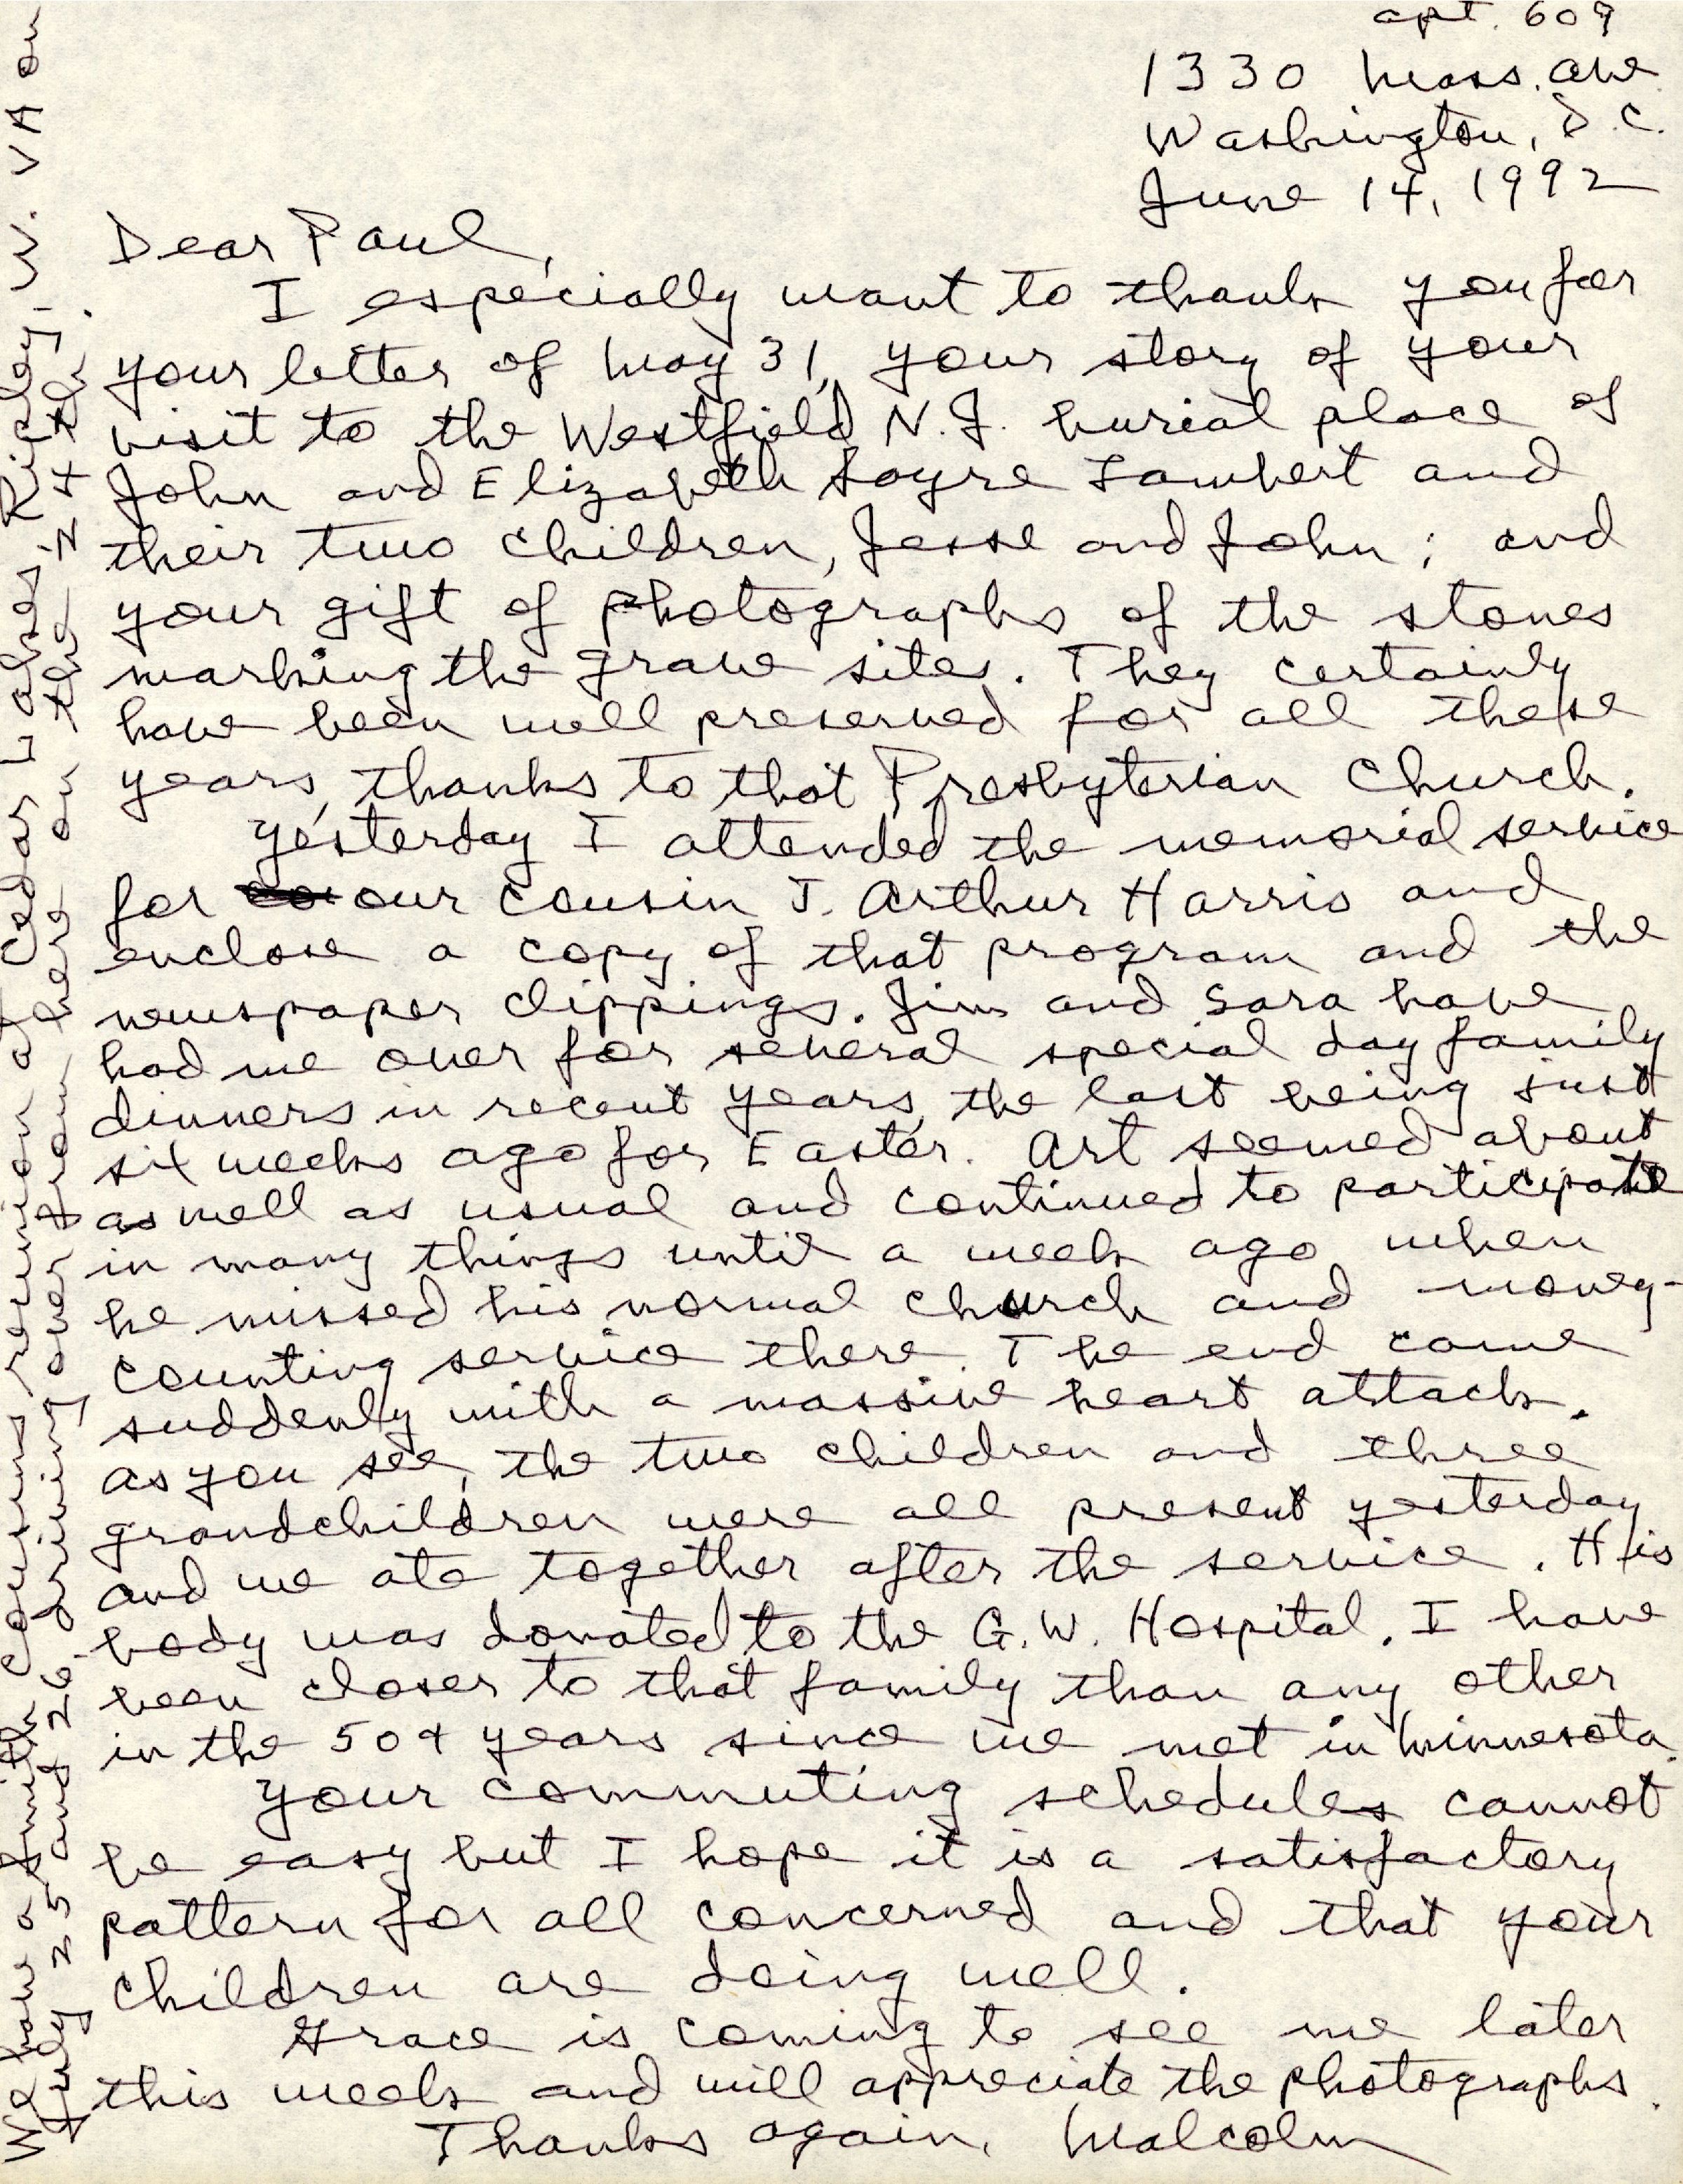 apt. 609
1330 Mass. Ave
Washington, D.C.
June 14, 1992
Dear Paul,
I especially want to thank you for
your letter of May 31, your story of your
visit to the Westfield N.J. burial place of
John and Elizabeth Sayre Lambert and
their two children, Jesse and John; and
your gift of photographs of the stones
marking the grave sites. They certainly
have been well preserved for all these
years, thanks to that Presbyterian Church.
Yesterday I attended the memorial service
for our cousin J. Arthur Harris and
enclose a copy of that program and the
newspaper clippings. Jim and Sara have
had me over for several special day family
dinners in recent years, the last being just
six weeks ago for Easter. Art seemed about
as well as usual and continued to participate
in many things until a week ago when
he missed his normal church and money-
counting service there. The end came
suddenly with a massive heart attack.
As you see, the two children and three
grandchildren were all present yesterday
and we ate together after the service. His
body was donated to the G.W. Hospital. I have
been closer to that family than any other
in the 50+ years since we met in Minnesota.
Your commuting schedules cannot
be easy but I hope it is a satisfactory
pattern for all concerned and that your
children are doing well.
Grace is coming to see me later
this week and will appreciate the photographs.
Thanks again, Malcolm
We have a Smith cousins reunion at Cedar Lakes, Ripley, W. VA on
July 25 and 26, driving over from here on the 24th.